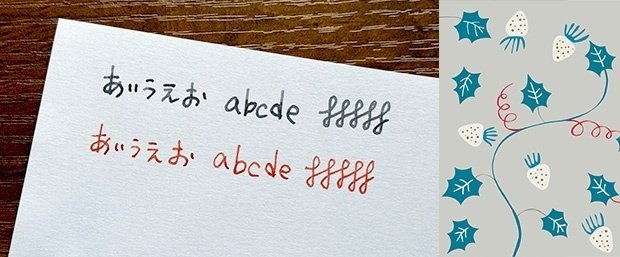 あいうえお abcde fffff
あいうえお abcde fffff